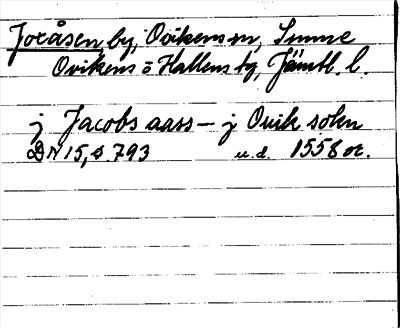 Jocåsen by, Ovikens sn,
Ovikens o Hallens tg, Jämtl. l.
j Jacobs aass – j Ovik sokn
DN 15, s. 793 u.d. 1558 or.